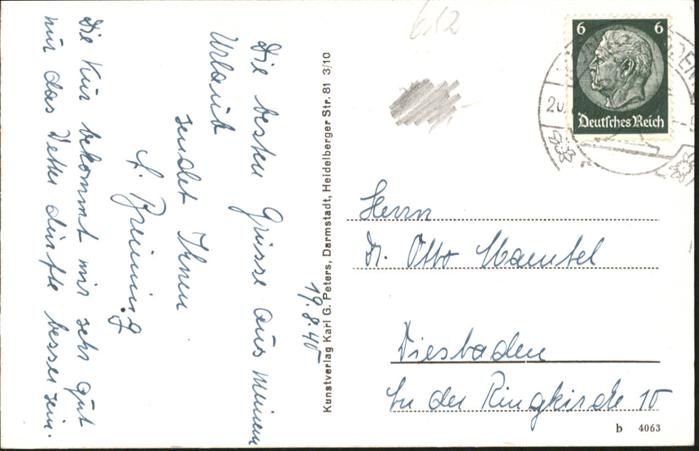 612
6 6
Deutsches Reich
20.
Die besten Grüsse aus meinem
Urlaub
sendet Ihnen
Die Kur bekommt mir sehr gut
nur das Wetter dürfte besser sein.
19.8.40
Kunstverlag Karl G. Peters, Darmstadt, Heidelberger Str. 81 3/10
Herrn
Dr. Otto
Wiesbaden
An der Ringkirche 10
b 4063